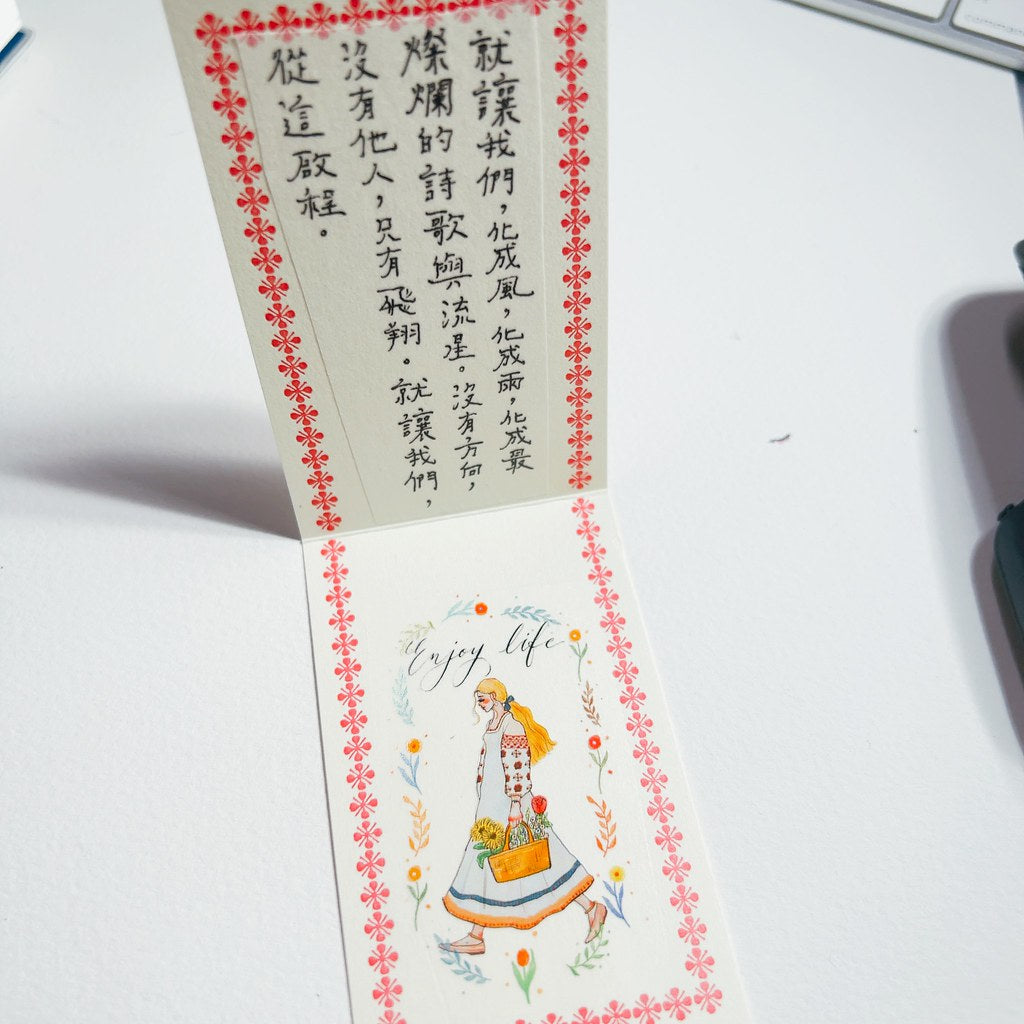 就讓我們，化成風，化成雨，化成最
燦爛的詩歌與流星。沒有方向，
沒有他人，只有飛翔。就讓我們，
從這啟程。
Enjoy life